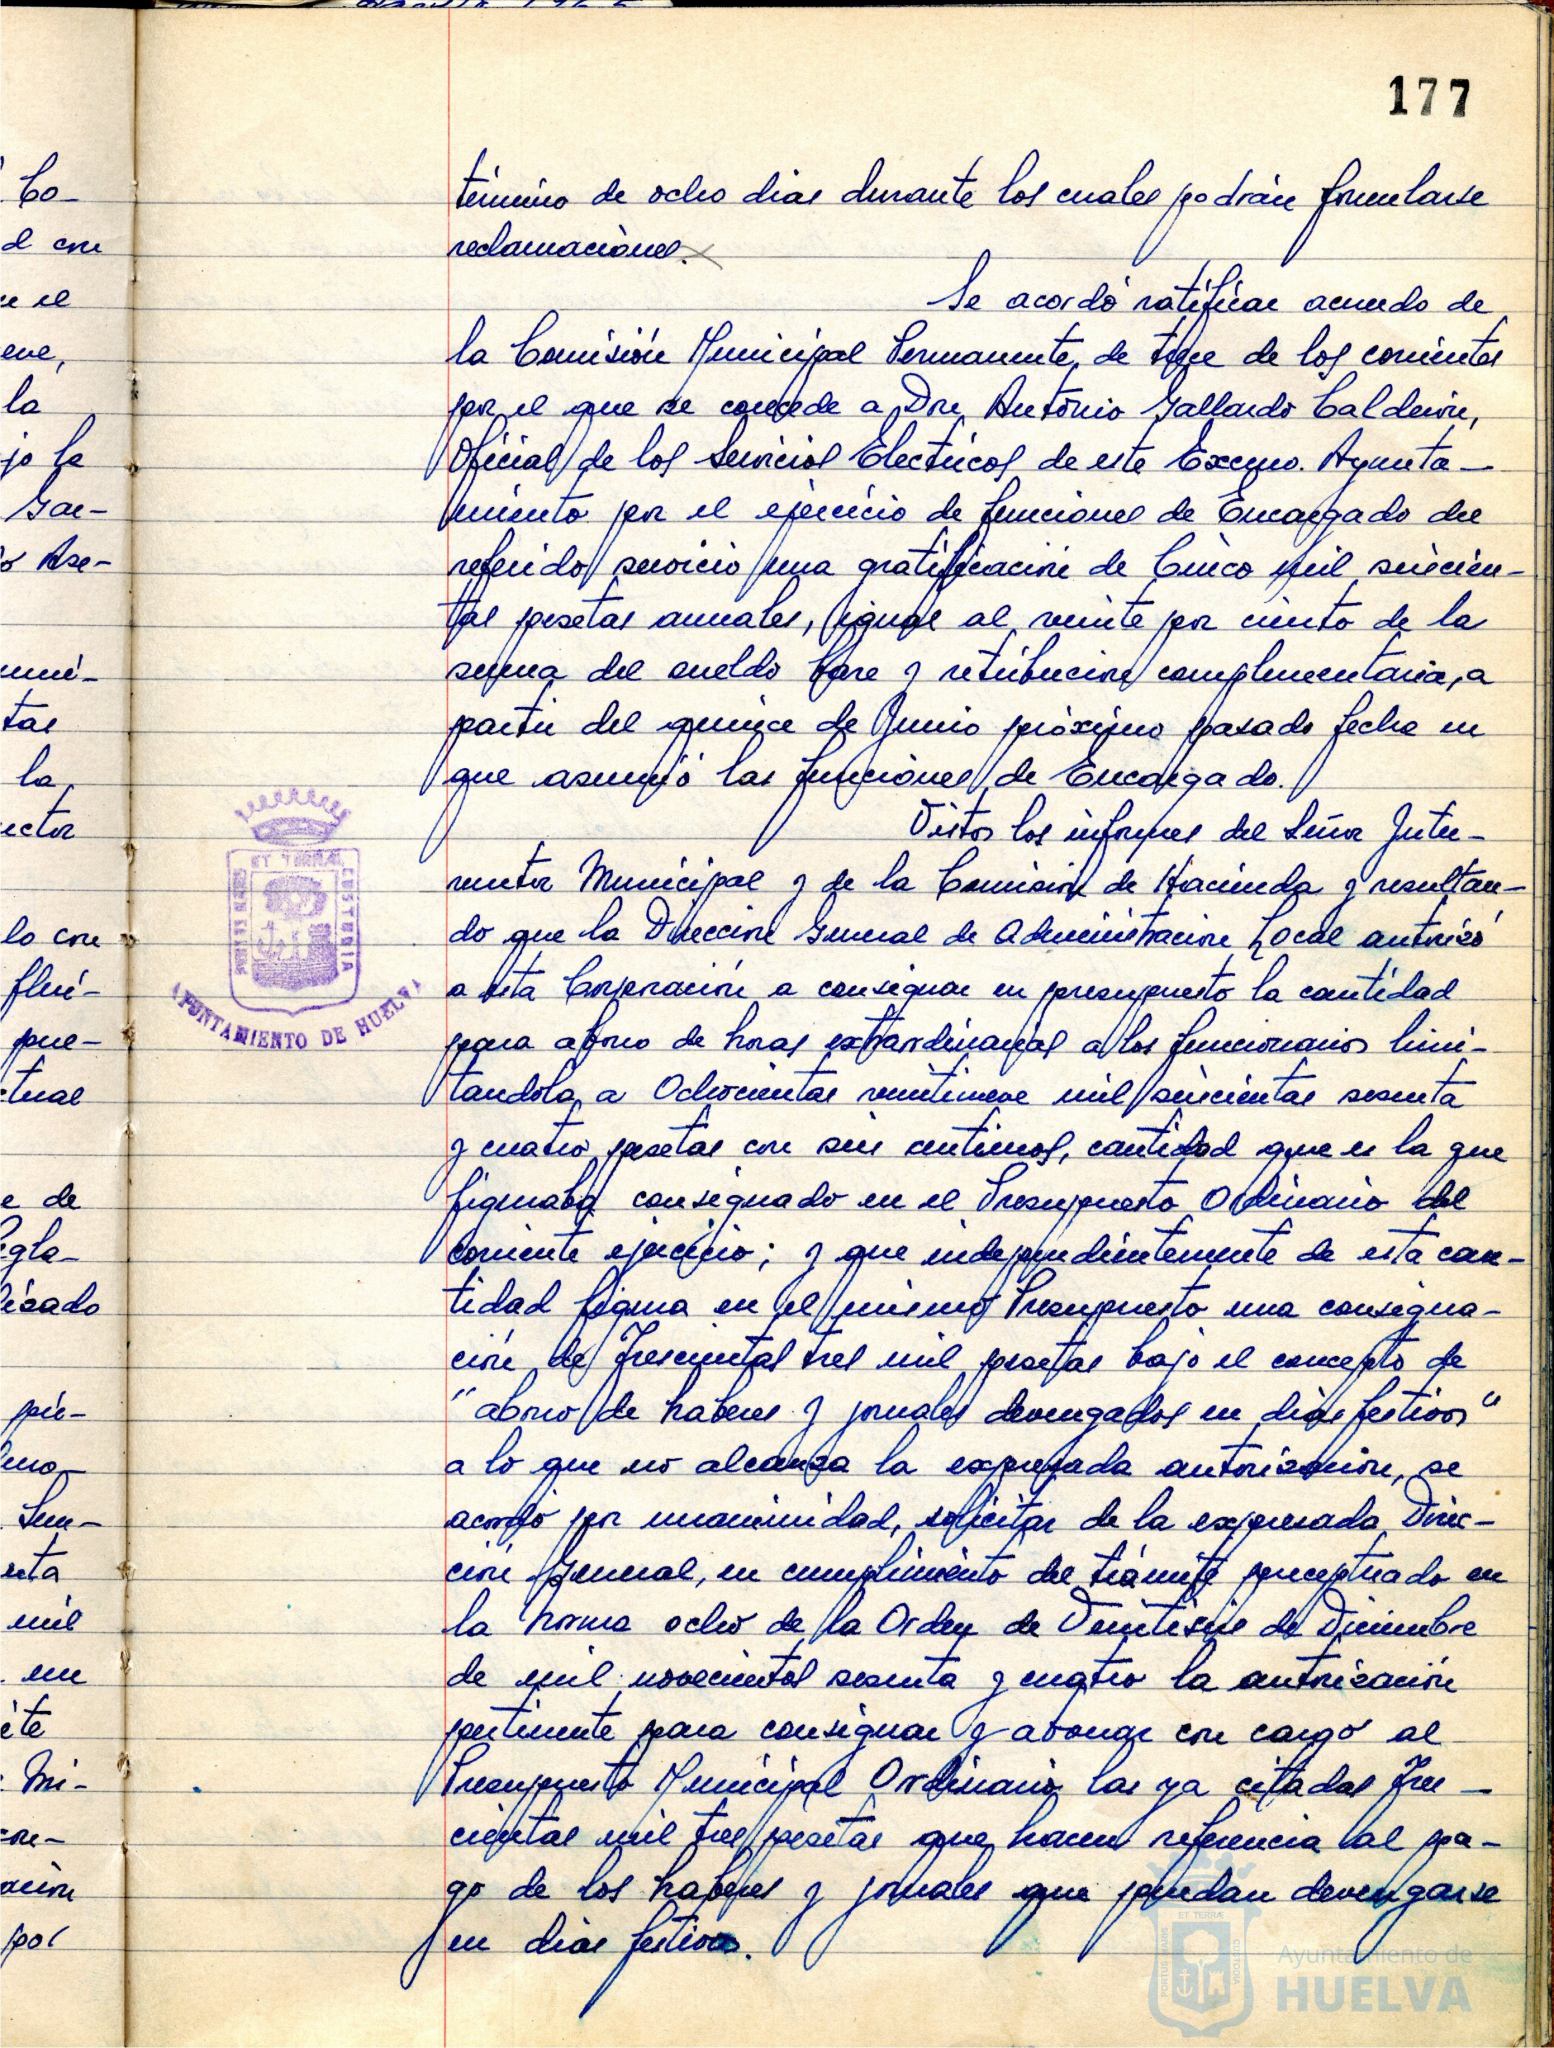 177
término de ocho dias durante los cuales podrán formularse
reclamaciones.
Se acordó ratificar acuerdo de
la Comisión Municipal Permanente, de trece de los corrientes
por el que se concede a Don Antonio Gallardo Calderón,
Oficial de los Servicios Electricos de este Excmo. Ayunta-
miento por el ejercicio de funciones de Encargado del
referido servicio una gratificacion de Cinco mil seiscien-
tas pesetas anuales, igual al veinte por ciento de la
suma del sueldo base y retribucion complementaria, a
partir del quince de Junio próximo pasado fecha en
que asumió las funciones de Encargado.
Vistos los informes del Señor Inter-
ventor Municipal y de la Comision de Hacienda y resultan-
do que la Direccion General de Administracion Local autorizó
a esta Corporación a consignar en presupuesto la cantidad
para abono de horas extraordinarias a los funcionarios limi-
tandola a Ochocientas veintinueve mil seiscientas sesenta
y cuatro pesetas con seis centimos, cantidad que es la que
figuraba consignado en el Presupuesto Ordinario del
corriente ejercicio; y que independientemente de esta can-
tidad figura en el mismo Presupuesto una consigna-
ción de Trescientas tres mil pesetas bajo el concepto de
"abono de haberes y jornales devengados en dias festivos"
a lo que no alcanza la expresada autorización, se
acordó por unanimidad, solicitar de la expresada Direc-
ción General, en cumplimiento del trámite preceptuado en
la norma ocho de la Orden de Veintiseis de Diciembre
de mil novecientos sesenta y cuatro la autorización
pertinente para consignar y abonar con cargo al
Presupuesto Municipal Ordinario las ya citadas Tres-
cientas mil tres pesetas que hacen referencia al pa-
go de los haberes y jornales que puedan devengarse
en dias festivos.
ET TERRAE
CUSTODIA
AYUNTAMIENTO DE HUELVA
Co-
d con
eve,
la
jo la
Gar-
o Ase-
tas
la
ector
lo con
flui-
pue-
ctual
e de
egla-
lizado
Sun-
enta
mil
Mi-
con-
ación
por
PORTUS MARIS
ET TERRÆ
CUSTODIA
Ayuntamiento de
HUELVA